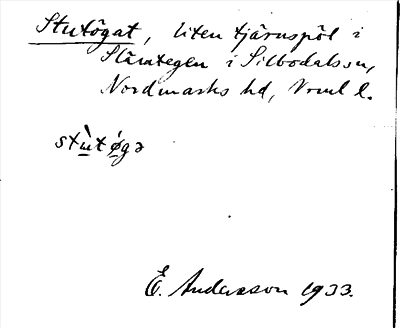 Stutögat, liten tjärnspöl i
Slävtegen i Silbodalssn,
Nordmarks hd, Vrml l.
stùtǿgə
E. Andersson 1933.